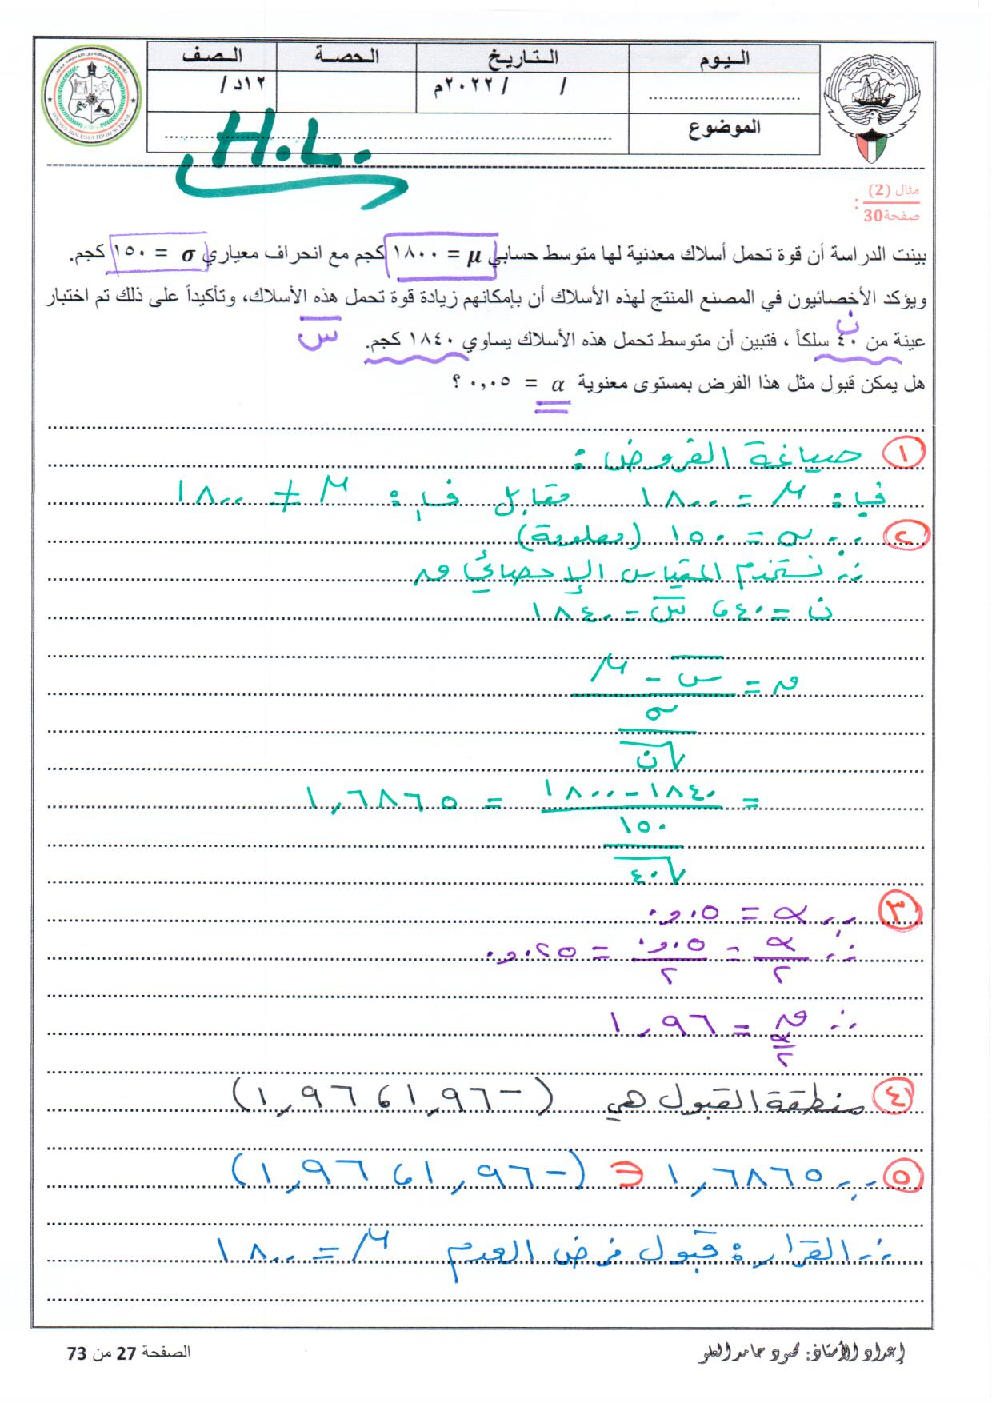 اليوم التاريخ الحصة الصف
/ /٢٠٢٢م ١٢د/
الموضوع
H.L.
مثال (2)
صفحة30 :
بينت الدراسة أن قوة تحمل أسلاك معدنية لها متوسط حسابي μ = ١٨٠٠ كجم مع انحراف معياري σ = ١٥٠ كجم.
ويؤكد الأخصائيون في المصنع المنتج لهذه الأسلاك أن بإمكانهم زيادة قوة تحمل هذه الأسلاك، وتأكيداً على ذلك تم اختبار
عينة من ٤٠ سلكاً ، فتبين أن متوسط تحمل هذه الأسلاك يساوي ١٨٤٠ كجم.
ن س̄
هل يمكن قبول مثل هذا الفرض بمستوى معنوية α = ٠,٠٥ ؟
١ صياغة الفروض :
ف٠: μ = ١٨٠٠ مقابل ف١: μ ≠ ١٨٠٠
٢ ∵ σ = ١٥٠ (معلومة)
∴ نستخدم المقياس الإحصائي ق
ن = ٤٠ ، س̄ = ١٨٤٠
ق = س̄ - μ
σ
√ن
= ١٨٤٠ - ١٨٠٠ = ١,٦٨٦٥
١٥٠
√٤٠
٣ ∵ α = ٠,٠٥
∴ α/٢ = ٠,٠٥/٢ = ٠,٠٢٥
∴ ق α/٢ = ١,٩٦
٤ منطقة القبول هي (-١,٩٦ ، ١,٩٦)
٥ ∵ ١,٦٨٦٥ ∈ (-١,٩٦ ، ١,٩٦)
∴ القرار : قبول فرض العدم μ = ١٨٠٠
إعداد الأستاذ: محمود حامد العلو الصفحة 27 من 73